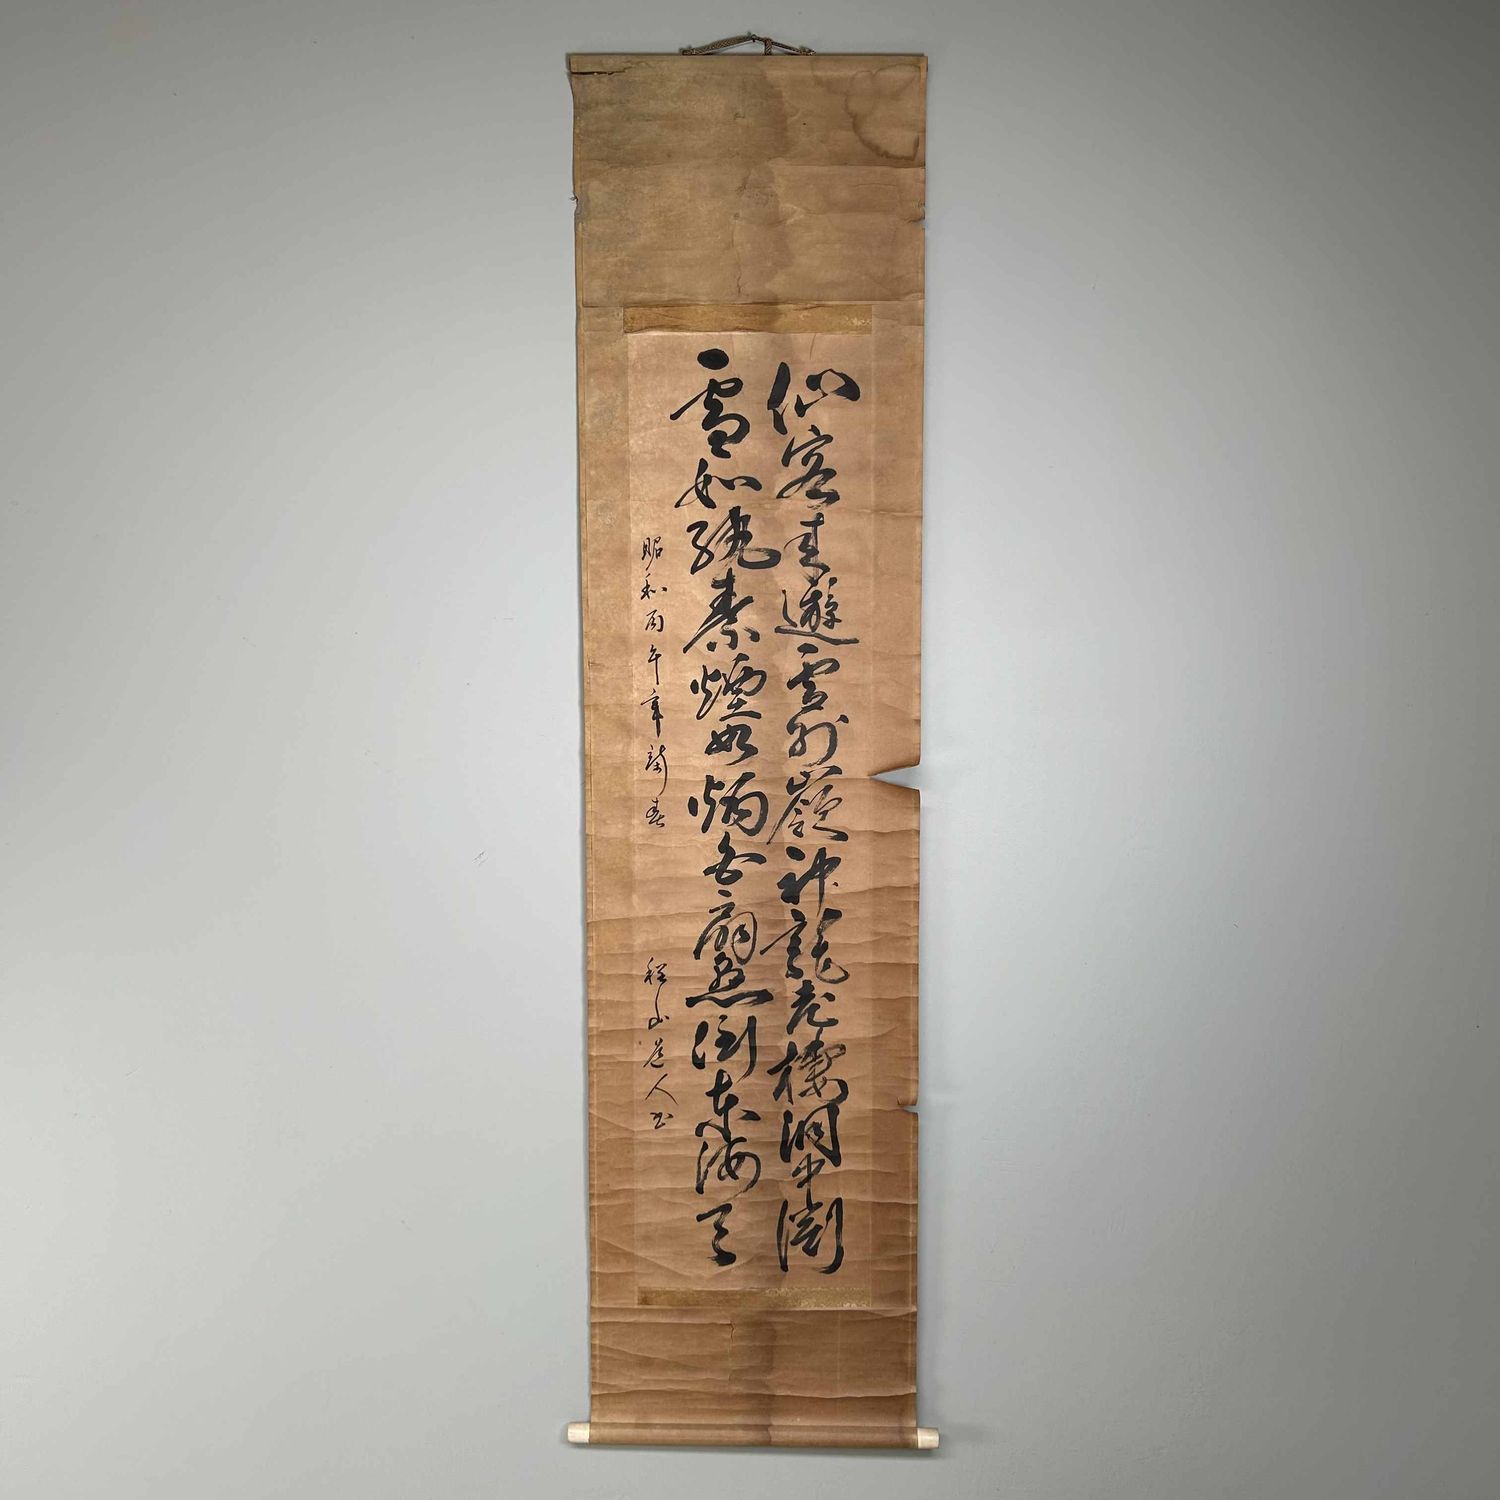 仙客来遊雲外嶺神龍老棲洞中渕
雪如紈素煙如柄白扇懸倒東海天
昭和丙午年春
山道人書